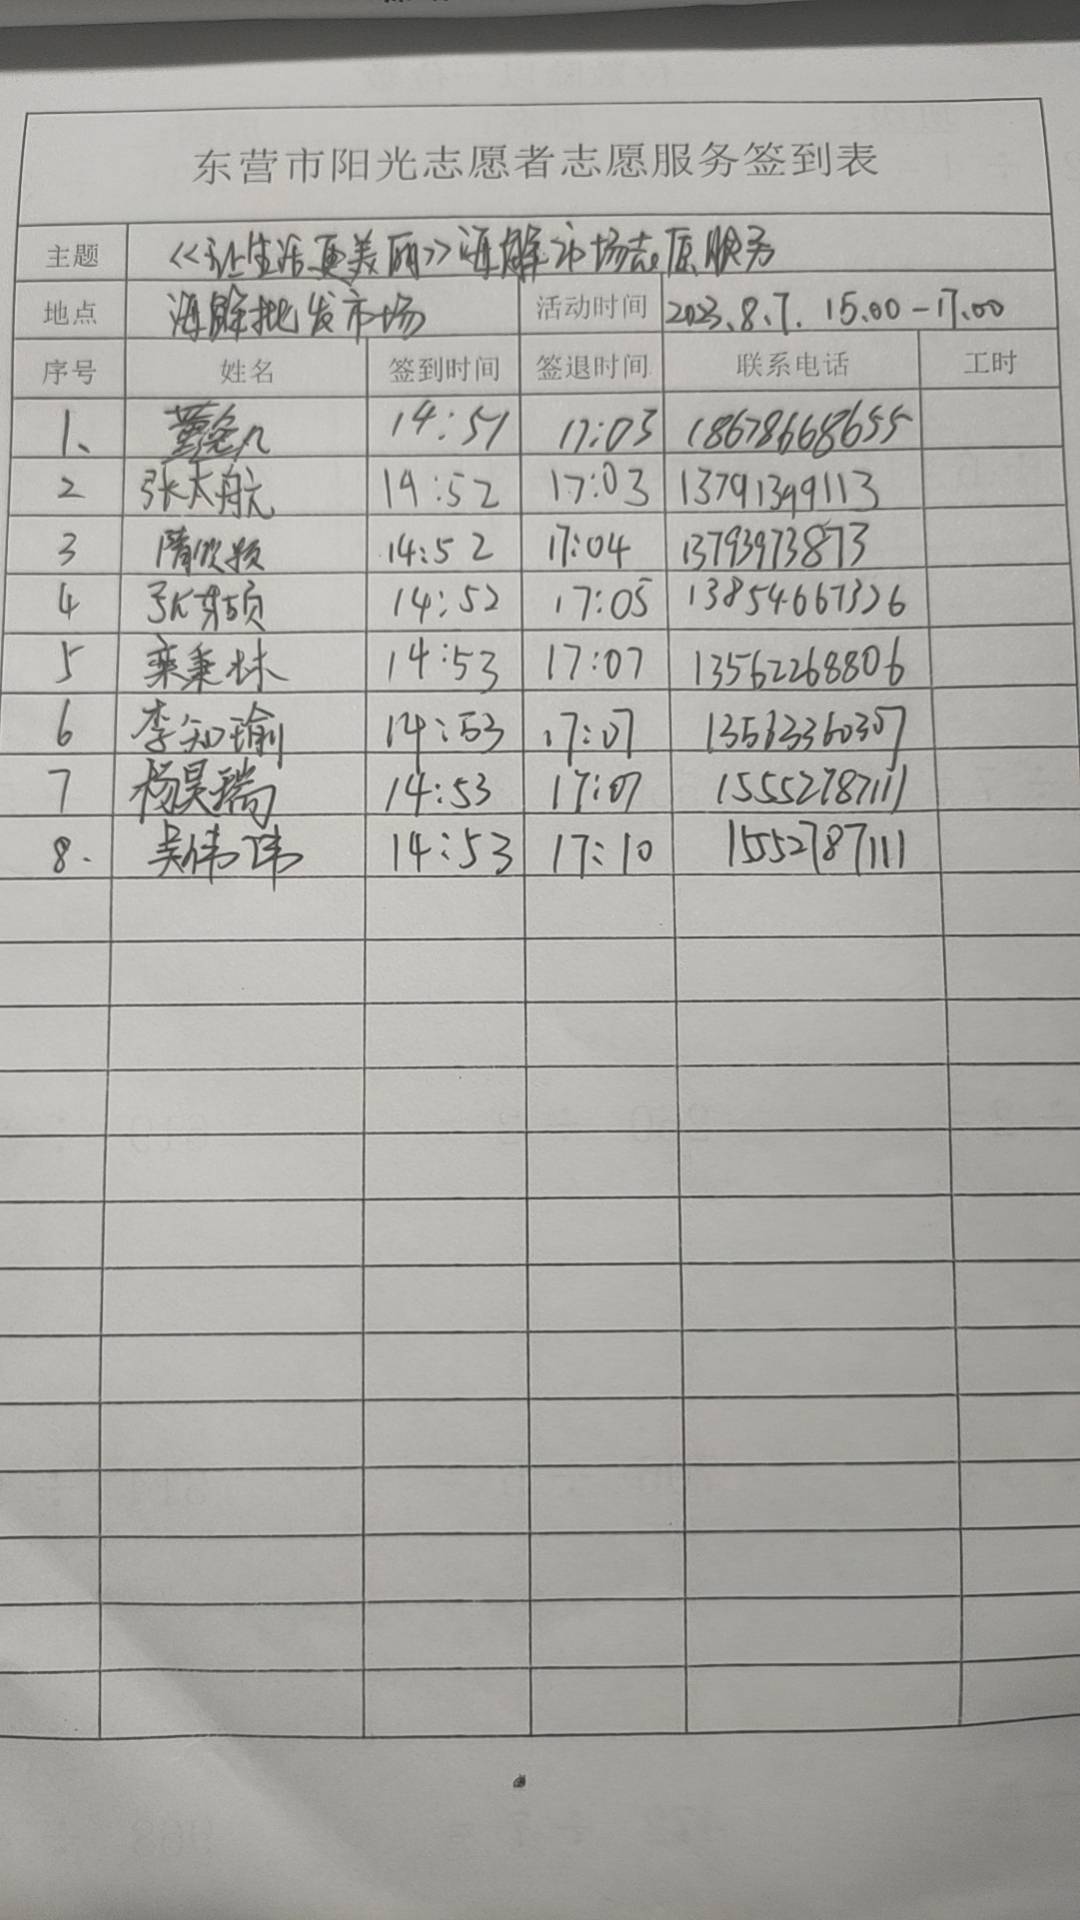 东营市阳光志愿者志愿服务签到表
主题 《让生活更美丽》海鲜市场志愿服务
地点 海鲜批发市场 活动时间 2023.8.7. 15.00-17.00
序号 姓名 签到时间 签退时间 联系电话 工时
1、 14:51 17:03 18678668655
2 张太航 14:52 17:03 13791349113
3 隋欣颖 14:52 17:04 13793973873
4 张硕 14:52 17:05 13854667326
5 栾秉林 14:53 17:07 13562268806
6 李知瑜 14:53 17:07 13563360307
7 杨昊瑞 14:53 17:07 15552787111
8. 吴伟伟 14:53 17:10 1552787111